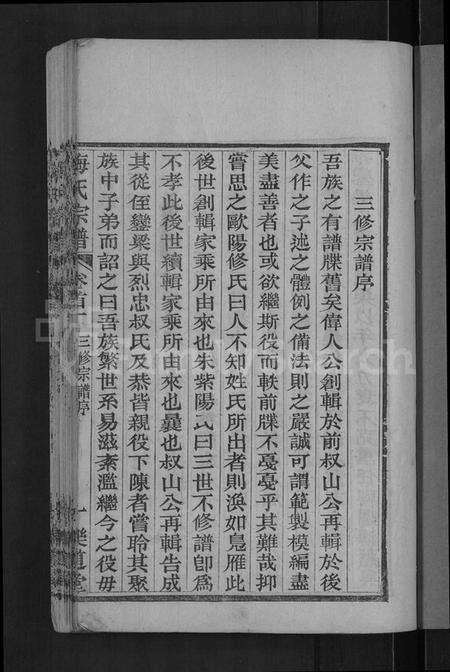 三修宗譜序
吾族之有譜牒舊矣偉人公創輯於前叔山公再輯於後
父作之子述之體例之備法則之嚴誠可謂範製模編盡
美盡善者也或欲繼斯役而軼前牒不戞戞乎其難哉抑
嘗思之歐陽修氏曰人不知姓氏所出者則渙如鳧雁此
後世創輯家乘所由來也朱紫陽氏曰三世不修譜卽爲
不孝此後世續輯家乘所由來也曩也叔山公再輯吿成
其從侄鑾巢與烈忠叔氏及恭皆親役下陳者嘗聆其聚
族中子弟而詔之曰吾族繁世系易滋紊濫繼今之役毋
梅氏宗譜 卷首一 三修宗譜序 一 道堂